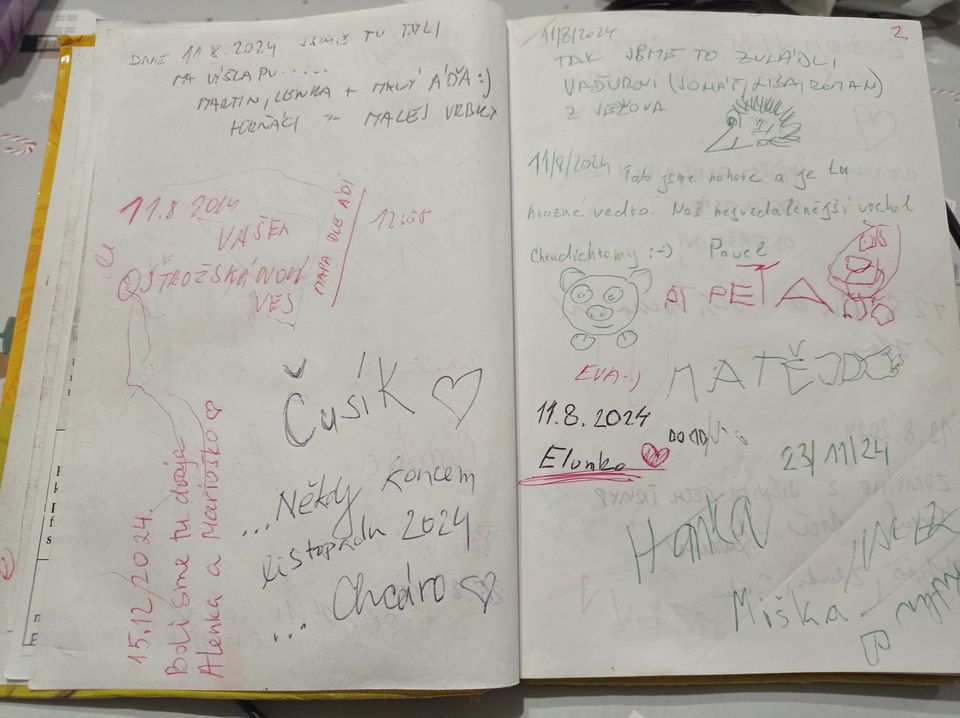 DNE 11.8.2024 JSME TU BYLI
NA VÝŠLAPU.....
MARTIN, LENKA + MALÝ ÁĎA :)
MALEJ VRBKY
11.8 2014
VAŠEK
OSTROŽSKÁ NOVÁ
VES
MAPA DLE ÁDI
12:55
Čusík
...Někdy koncem
listopadu 2024
... Chcáro
15.12/2024.
Boli sme tu dvaja
Alenka a Marioško
2
11/8/2024
TAK JSME TO ZVLÁDLI
VAĎUROVI (JONÁŠ, LIBA, ROMAN)
Z JEŽOVA
11/8/2024 Tak jsme nahoře a je tu
hrozné vedro. Náš nejvzdálenější vrchol
:-) Pavel
AT PEŤA
EVA :-)
MATĚJ
11.8.2024
Elunka
23/11/24
Hanka
Miška